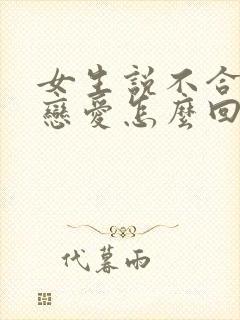 女生説不合
戀愛怎麼回
代暮雨